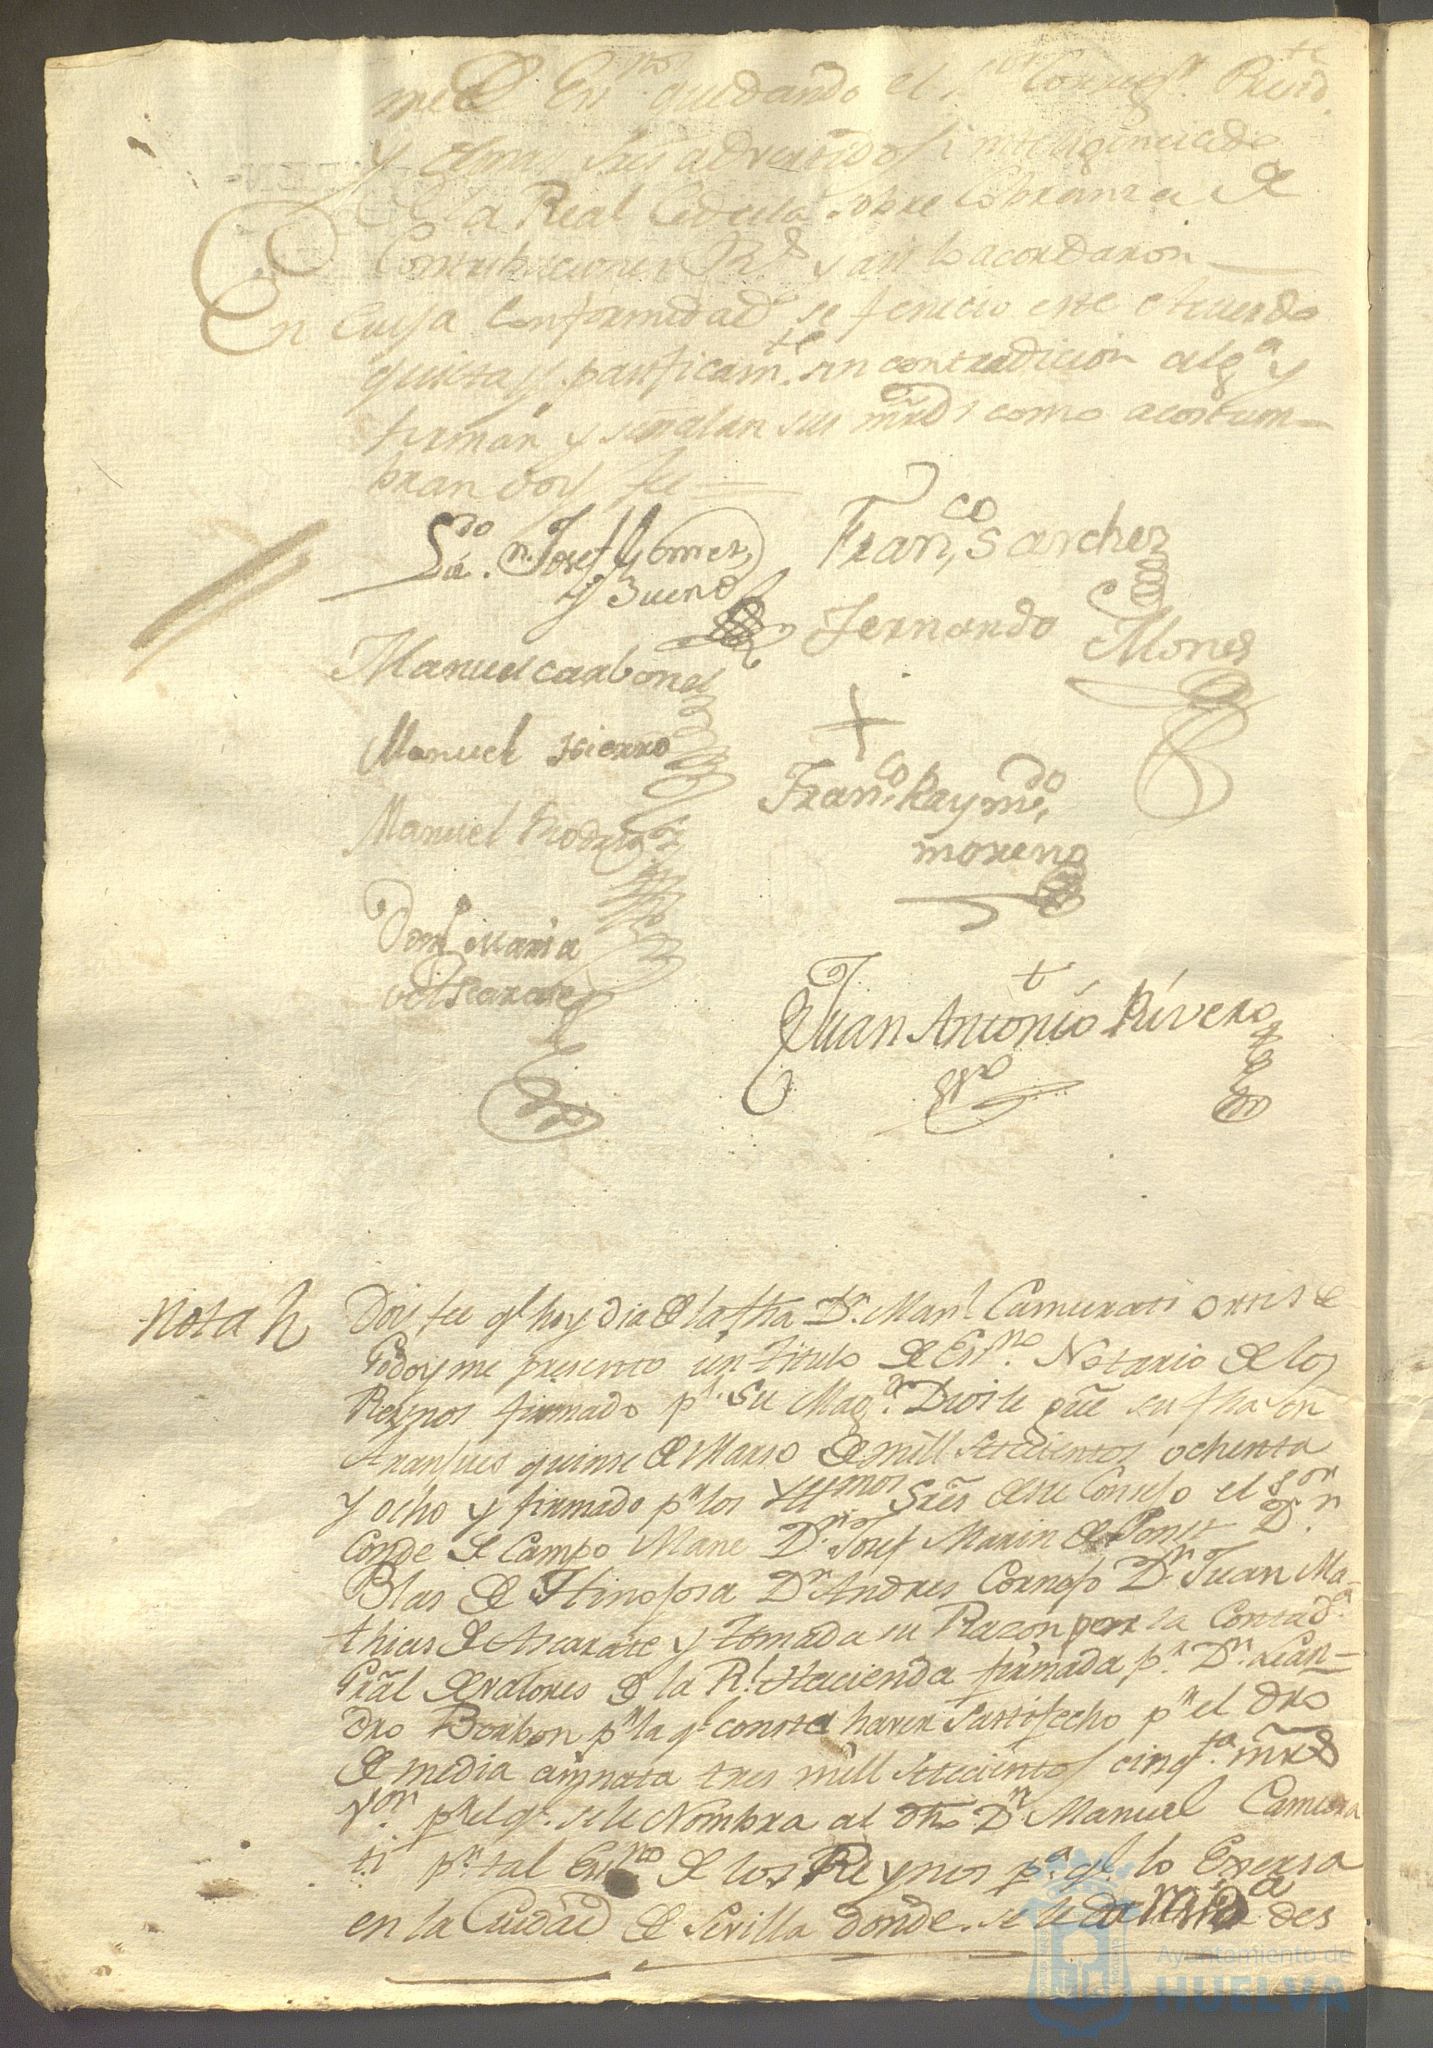 quedando el Sor Corregr
y demas Sres advertidos
la Real Cedula sobre Cobranza de
Contribuciones Rs y asi lo acordaron
En cuya conformidad se fenecio este Acuerdo
quieta y pacificamte sin contradicion alga y
firman y señalan sus mrds como acostum-
bran doy fee
Ldo Dn Josef Gomez
y Bueno
Franco Sanchez
Fernando Mones
Manuel carbonel
Manuel Hierro
Franco Raymdo
moreno
Manuel Rodrigz
Maria
Juan Antonio Rivero
Nota
Doy fee qe hoy dia de la fha Dn Manl Camurati Ortis de
Godoy me presento un titulo de Essno Notario de los
Reynos firmado pr Su Magd Dios le gue su fha en
Aranjues quinse de Marso de mill setecientos ochenta
y ocho y firmado pr los Sres de su Consejo el Sor
Conde de Campo Mane Dn Josef Marin Dn
Blas de Hinojosa Dn Andres Cornejo Dn Juan Ma-
thias de Ascarate y tomada su Razon por la Contada
Gral de valores de la Rl Hacienda firmada pr Dn Lean-
dro Borbon pr la qe consta haver sattisfecho pr el dro
de media annata tres mill setecientos cinqta mrs
Von pr el qe se le Nombra al dho Dn Manuel Camura
ti pr tal Essno de los Reynos pa qe lo Exersa
en la Ciudad de Sevilla donde se le da des
Ayuntamiento de
HUELVA